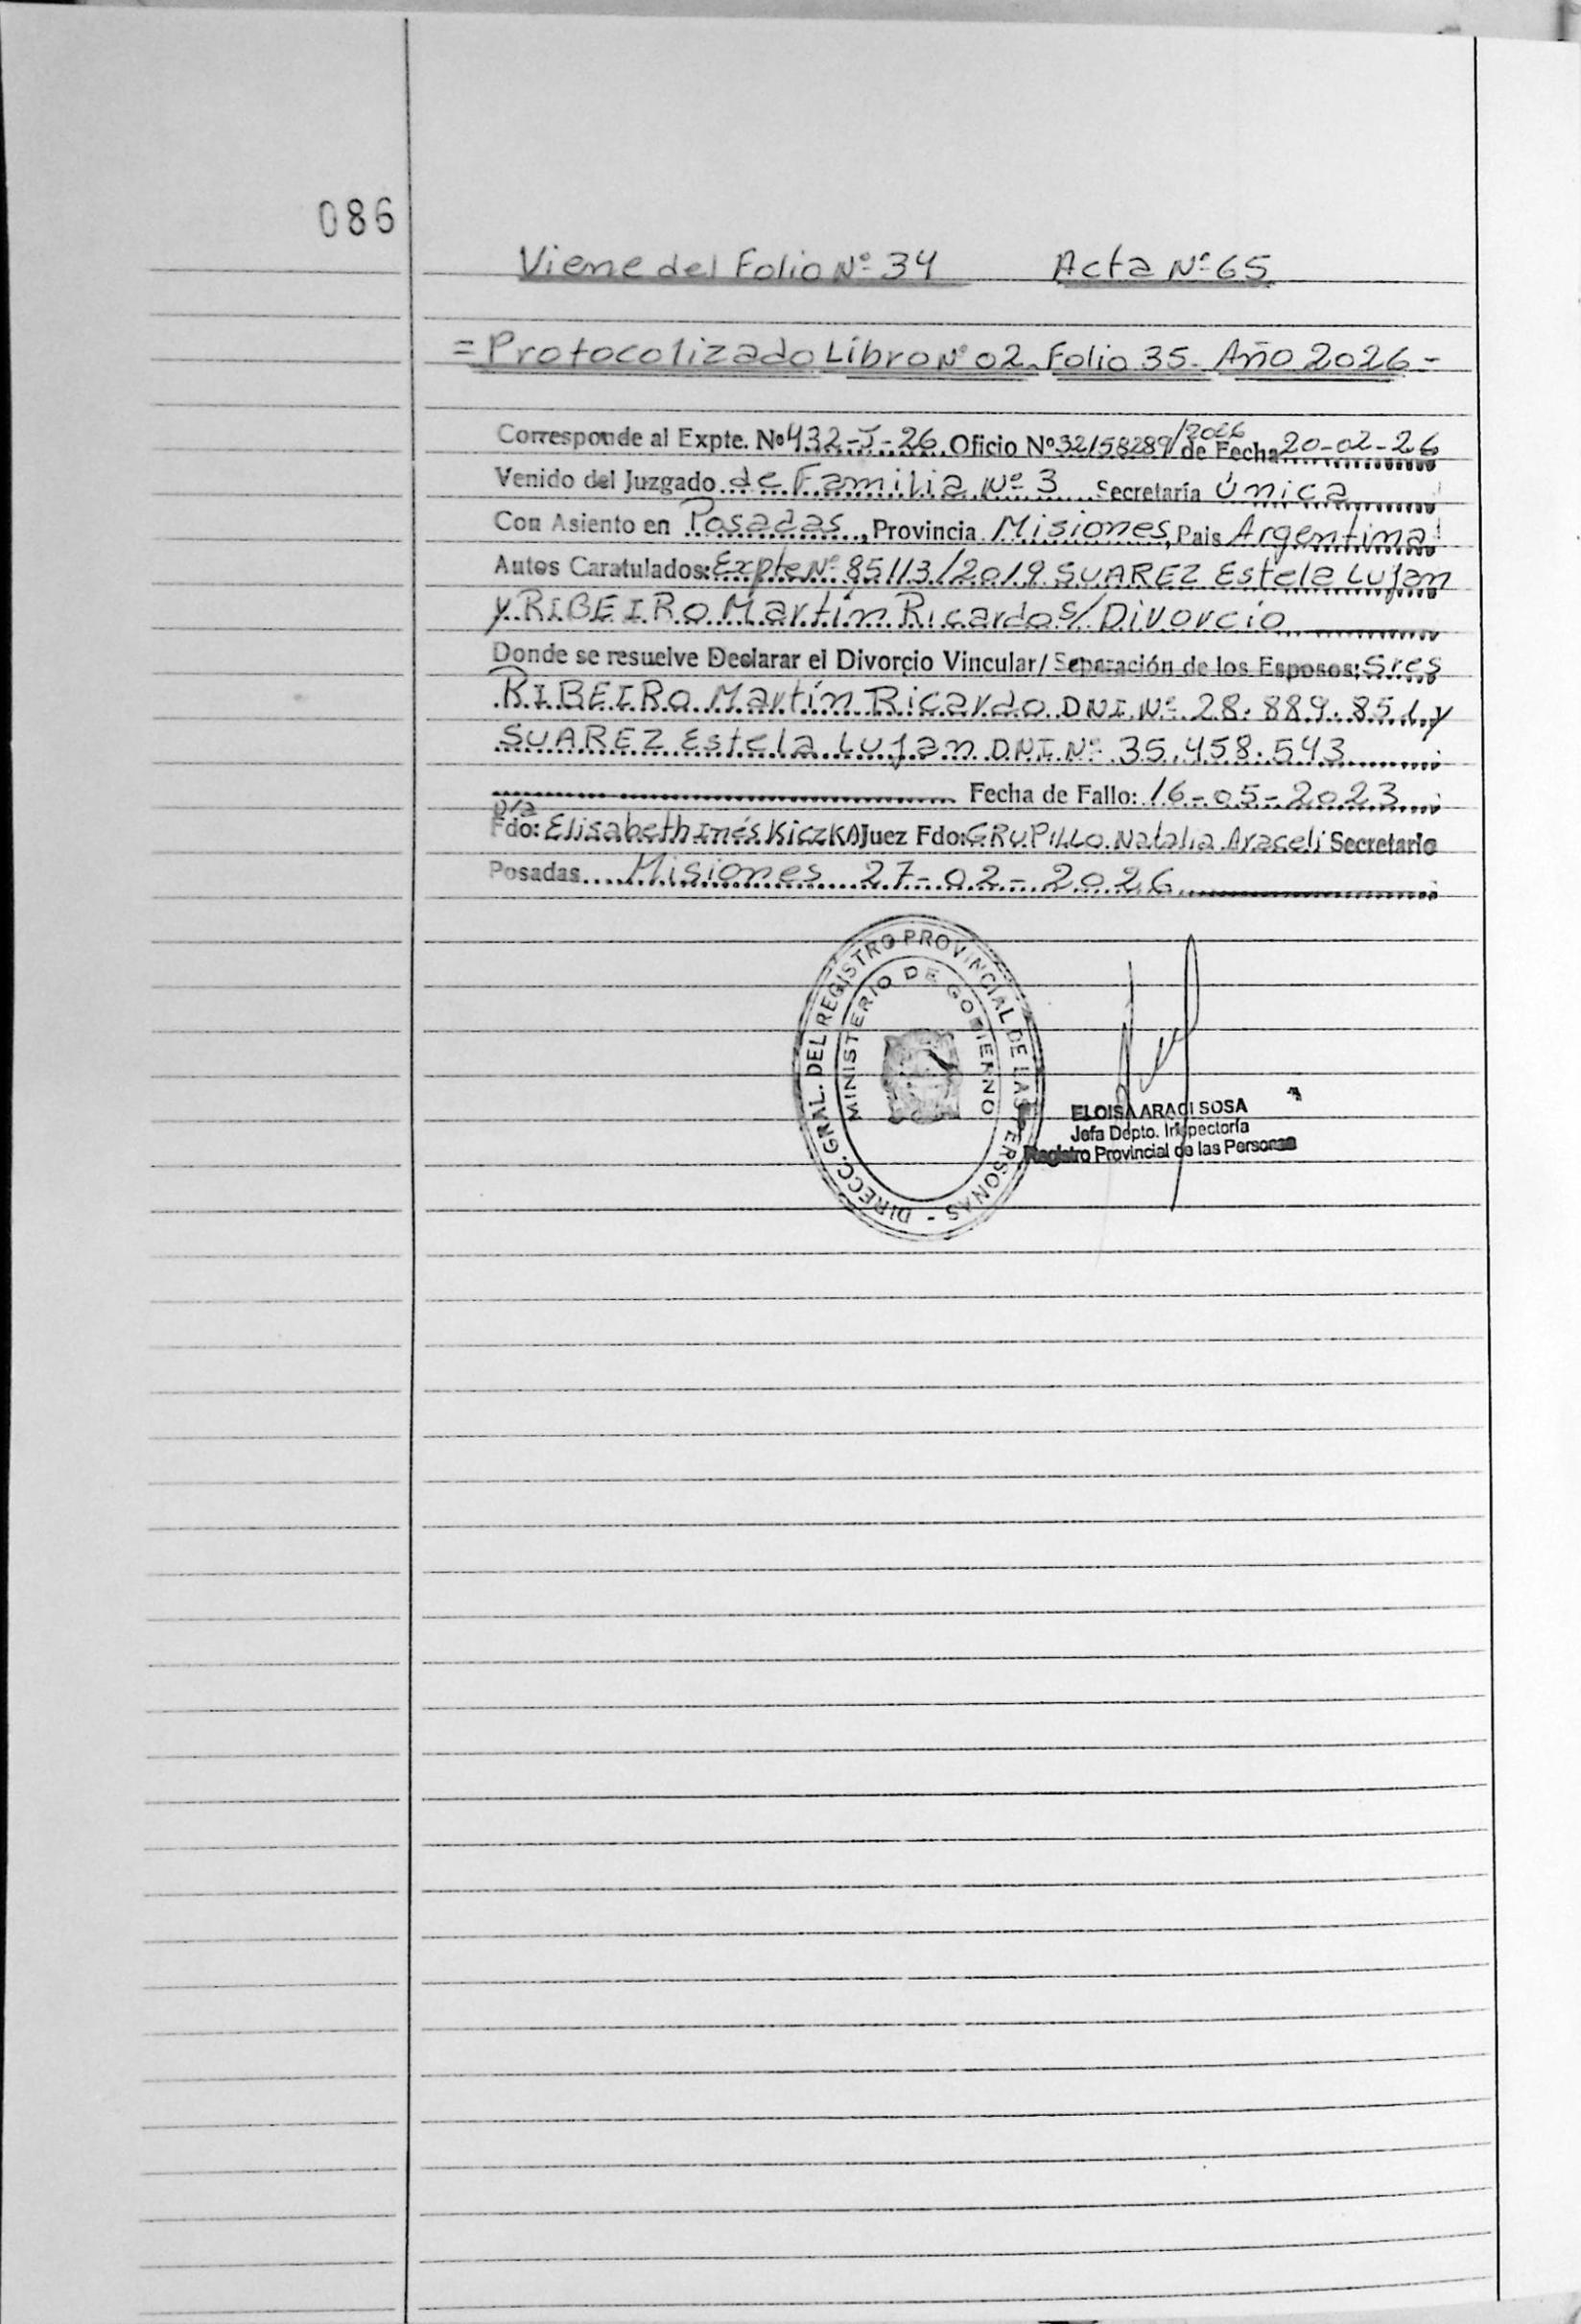 086
Viene del Folio Nº 34 Acta Nº 65
= Protocolizado Libro Nº 02. Folio 35. Año 2026 =
Corresponde al Expte. Nº 432-J-26 Oficio Nº 32158289/2026 de Fecha 20-02-26
Venido del Juzgado de Familia Nº 3 Secretaría Única
Con Asiento en Posadas, Provincia Misiones, Pais Argentina
Autos Caratulados: Expte Nº 85113/2019 SUAREZ Estela Lujan
y RIBEIRO Martín Ricardo s/ Divorcio
Donde se resuelve Declarar el Divorcio Vincular / Separación de los Esposos: Sres
RIBEIRO Martín Ricardo DNI Nº 28.889.851 y
SUAREZ Estela Lujan DNI Nº 35.458.543
Fecha de Fallo: 16-05-2023
p/a
Fdo: Elisabeth Inés Kiczka Juez Fdo: GRUPILLO Natalia Araceli Secretario
Posadas Misiones 27-02-2026
DIRECC. GRAL. DEL REGISTRO PROVINCIAL DE LAS PERSONAS -
MINISTERIO DE GOBIERNO
ELOISA ARACI SOSA
Jefa Depto. Inspectoría
Registro Provincial de las Personas